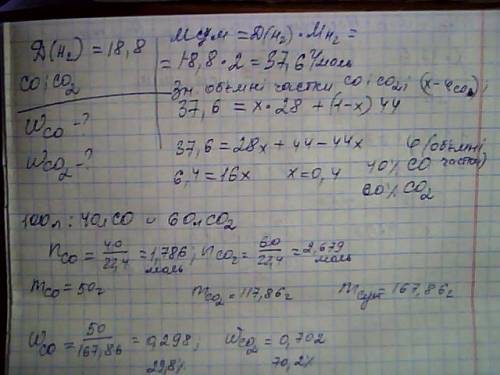 Д(H₂) = 18,8
CO; CO₂
WCO - ?
WCO₂ - ?
Mсум = Д(H₂) · MH₂ =
= 18,8 · 2 = 37,6 г/моль
Зн. об'ємні частки CO і CO₂;
37,6 = x · 28 + (1-x) 44
37,6 = 28x + 44 - 44x
φ (об'ємні частки)
6,4 = 16x x = 0,4
40% CO
60% CO₂
100 л: 40 л CO и 60 л CO₂
nCO = 40/22,4 = 1,786 моль; nCO₂ = 60/22,4 = 2,679 моль
mCO = 50г mCO₂ = 117,86г mсум = 167,86г
WCO = 50/167,86 = 0,298; WCO₂ = 0,702
29,8% 70,2%